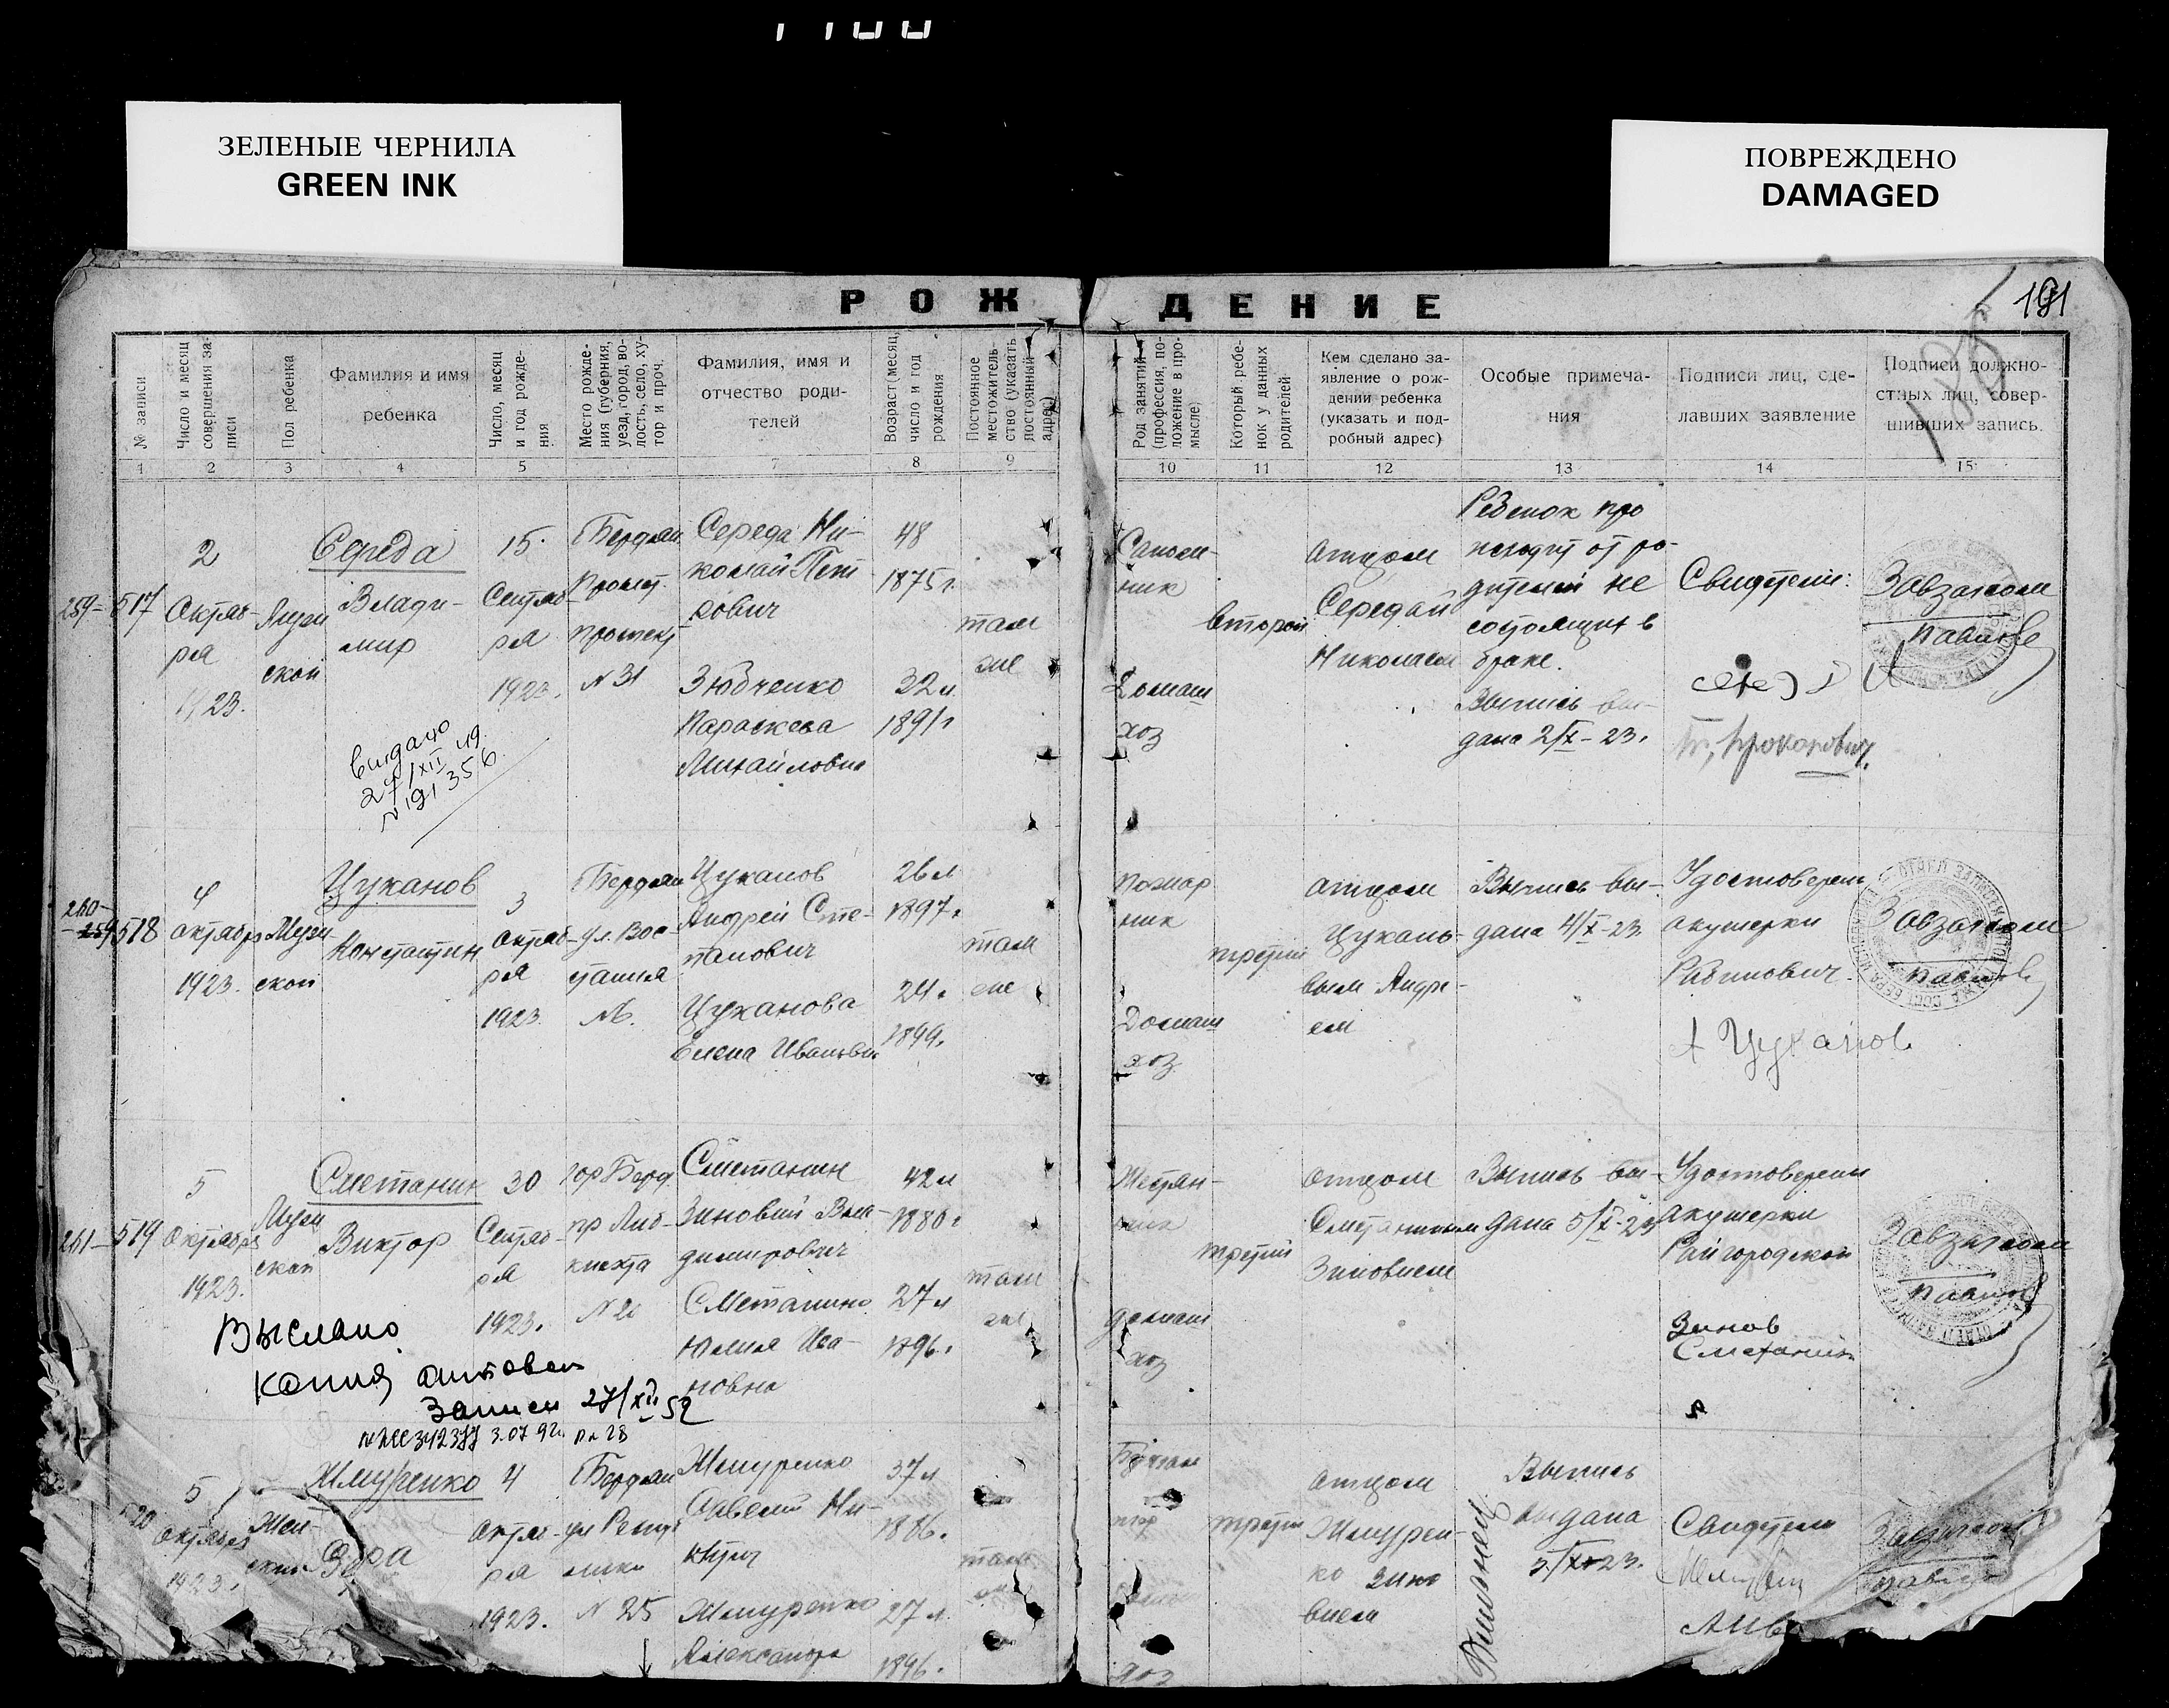 ЗЕЛЕНЫЕ ЧЕРНИЛА
GREEN INK
ПОВРЕЖДЕНО
DAMAGED
РОЖДЕНИЕ
191
№ записи
Число и месяц совершения записи
Пол ребенка
Фамилия и имя
ребенка
Число, месяц и год рождения
Место рождения (губерния, уезд, город, волость, село, хутор и проч.
Фамилия, имя и
отчество роди-
телей
Возраст (месяц, число и год рождения
Постоянное местожительство (указать постоянный адрес)
Род занятий (профессия, положение в промысле)
Который ребенок у данных родителей
Кем сделано за-
явление о рож-
дении ребенка
(указать и под-
робный адрес)
Особые примеча-
ния
Подписи лиц, сде-
лавших заявление
Подписи должно-
стных лиц, совер-
шивших запись.
1 2 3 4 5 7 8 9 10 11 12 13 14 15
259- 517
2
Октяб-
ря
1923.
Мужи
ской
Середа
Влади-
мир
15.
Сентяб-
ря
1923.
Бердян
Пролет.
проспект
N 31
Середа Ни-
колай Пет
рович
Зюбченко
Параскева
Михайловна
48
1875 г.
32 л.
1891 г
там
же
Домаш
хоз
второй
отцом
Середой
Николаем
Ребенок про
исходит от ро-
дителей не
состоящих в
браке.
Выпись вы-
дана 2/X-23.
Свидетели:
Завзагсом
видано
27/XII 49.
N 191356.
260-
518
4
октября
1923.
Мужи
ской
Цуканов
Константин
3
Октяб-
ря
1923.
Бердян
ул. Вос-
стания
Цуканов
Андрей Сте-
панович
Цуканова
Елена Ивановна
26 л
1897.
24.
1899.
там
же
Домаш
хоз
третий
отцом
Цукано-
вым Андре-
ем
Выпись вы-
дана 4/X-23.
Удостоверен
акушерки
Рабинович
А Цуканов
Завзагсом
261- 519
5
Октября
1923.
Мужи
ской
Сметанин
Виктор
30
Сентяб-
ря
1923.
гор Берд.
пр Либ-
кнехта
Сметанин
Зиновий Вла-
димирович
Сметанина
Юлия Ива-
новна
42 л
1880 г
27 л
1896.
там
же
домаш
хоз
третий
отцом
Сметаниным
Зиновием
Выпись вы-
дана 5/X-23
Удостоверен
акушерки
Райгородской
Зинов
Сметанин
Завзагсом
Выслано
копия актовой
записи 27/XII 52
520
5
Октября
1923.
Жен-
ский
Жмуренко
4
Октяб-
ря
1923.
Бердян
N 25
Жмуренко
Жмуренко
Александра
37 л
1886.
27 л.
1896.
там
хоз
третий
отцом
Жмурен-
ко Зино
вием
Выпись
выдана
5/X-23.
Завзагсом